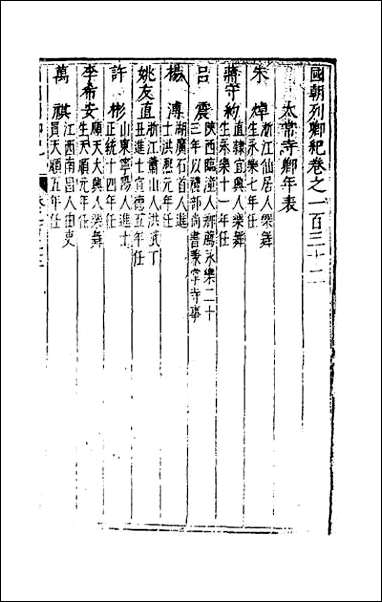 國朝列卿紀卷之一百三十二
太常寺卿年表
朱焯
浙江仙居人樂舞
生永樂七年任
蔣守約
直隸宜興人樂舞
生永樂十一年任
呂震
陝西臨潼人鄉薦永樂二十
三年以禮部尚書兼掌寺事
楊溥
湖廣石首人進
士洪熙元年任
姚友直
浙江蕭山人洪武丁
丑進士宣德五年任
許彬
山東寧陽人進士
正統十四年任
李希安
順天大興人樂舞
生天順元年任
萬祺
江西南昌人由吏
員天順五年任